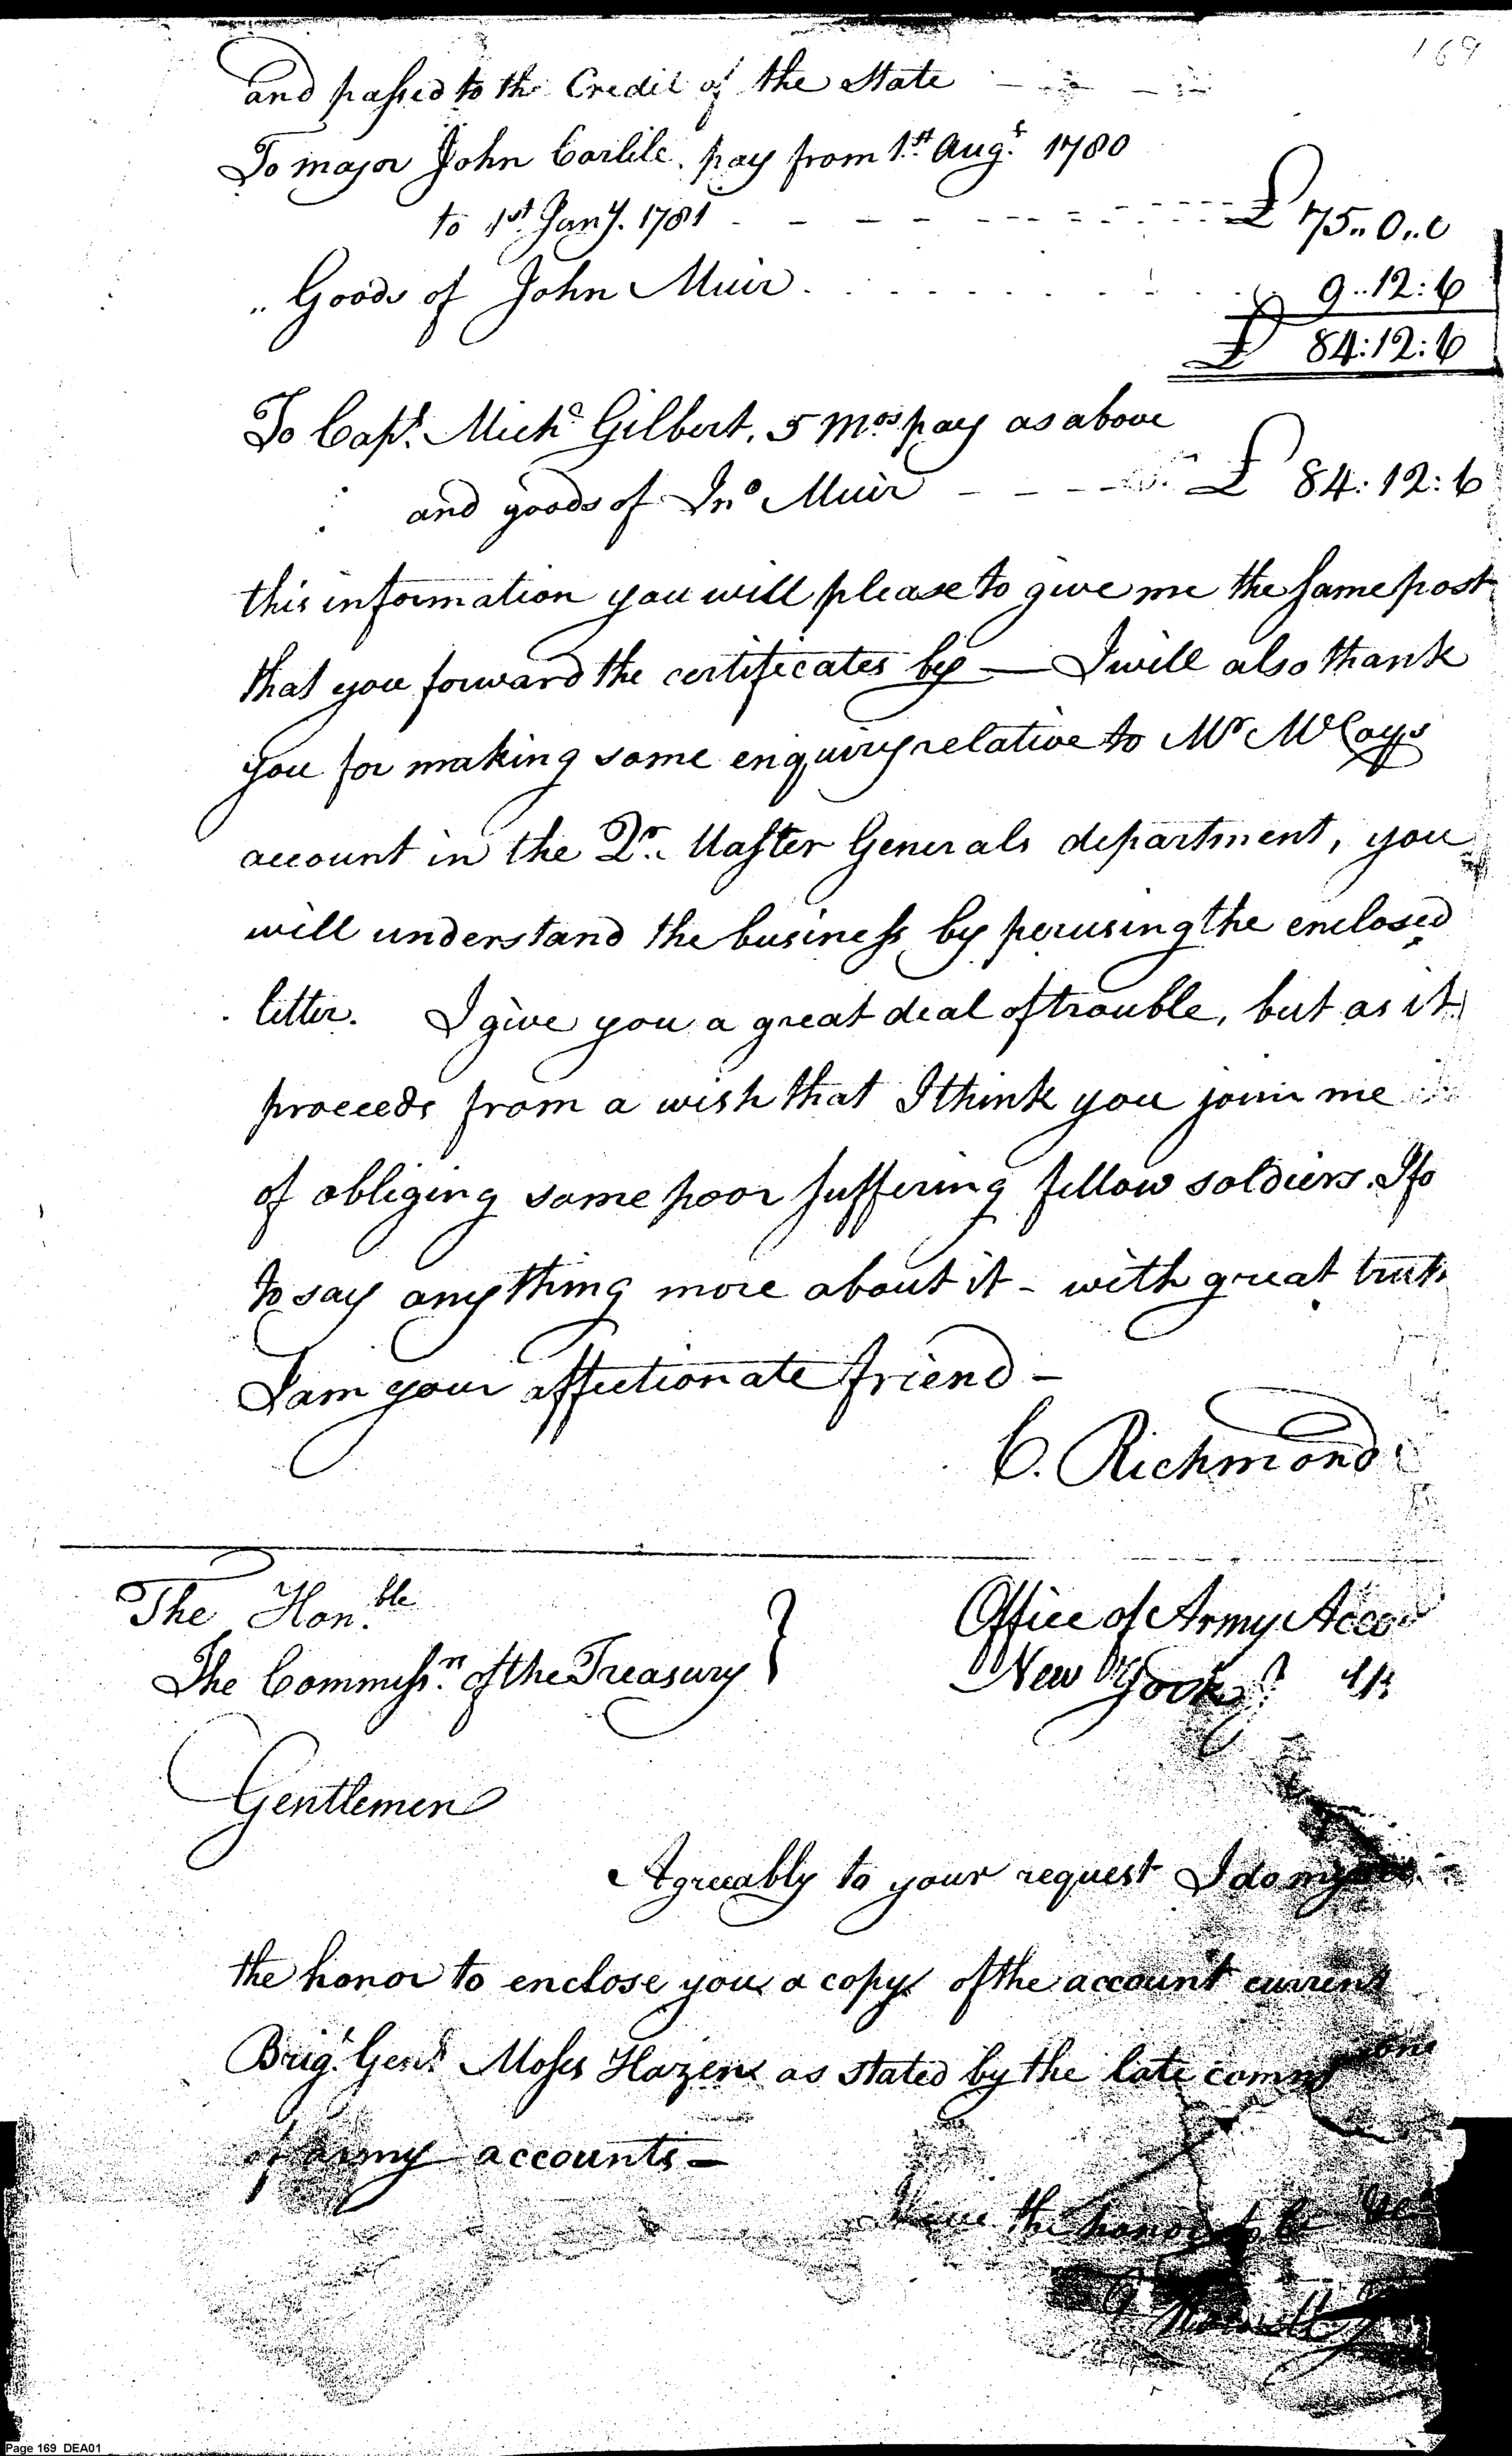 169
and passed to the Credit of the State
To major John Carlile. pay from 1st. Augt. 1780
to 1st. Jany. 1781 - - - - - - - £ 75..0..0
" Goods of John Muir. . . . . . . . . 9..12:6
£ 84:12:6
To Capt. Michl Gilbert, 5 Mos. pay as above
and goods of Jno Muir - - - - £ 84:12:6
this information you will please to give me the same post
that you forward the certificates by — I will also thank
you for making some enquiry relative to Mr McCoys
account in the Qr. Master Generals department, you
will understand the business by perusing the enclosed
letter. I give you a great deal of trouble, but as it
proceeds from a wish that I think you join me
of obliging some poor suffering fellow soldiers.
to say anything more about it - with great truth
I am your affectionate friend -
C. Richmond
The Hon.ble
The Commissn. of the Treasury }
Office of Army Acco
New York
Gentlemen
Agreeably to your request I do my
the honor to enclose you a copy of the account current
Brigr. Genl. Moses Hazen as stated by the late
of army accounts —
have the honor to be &c
Page 169 DEA01